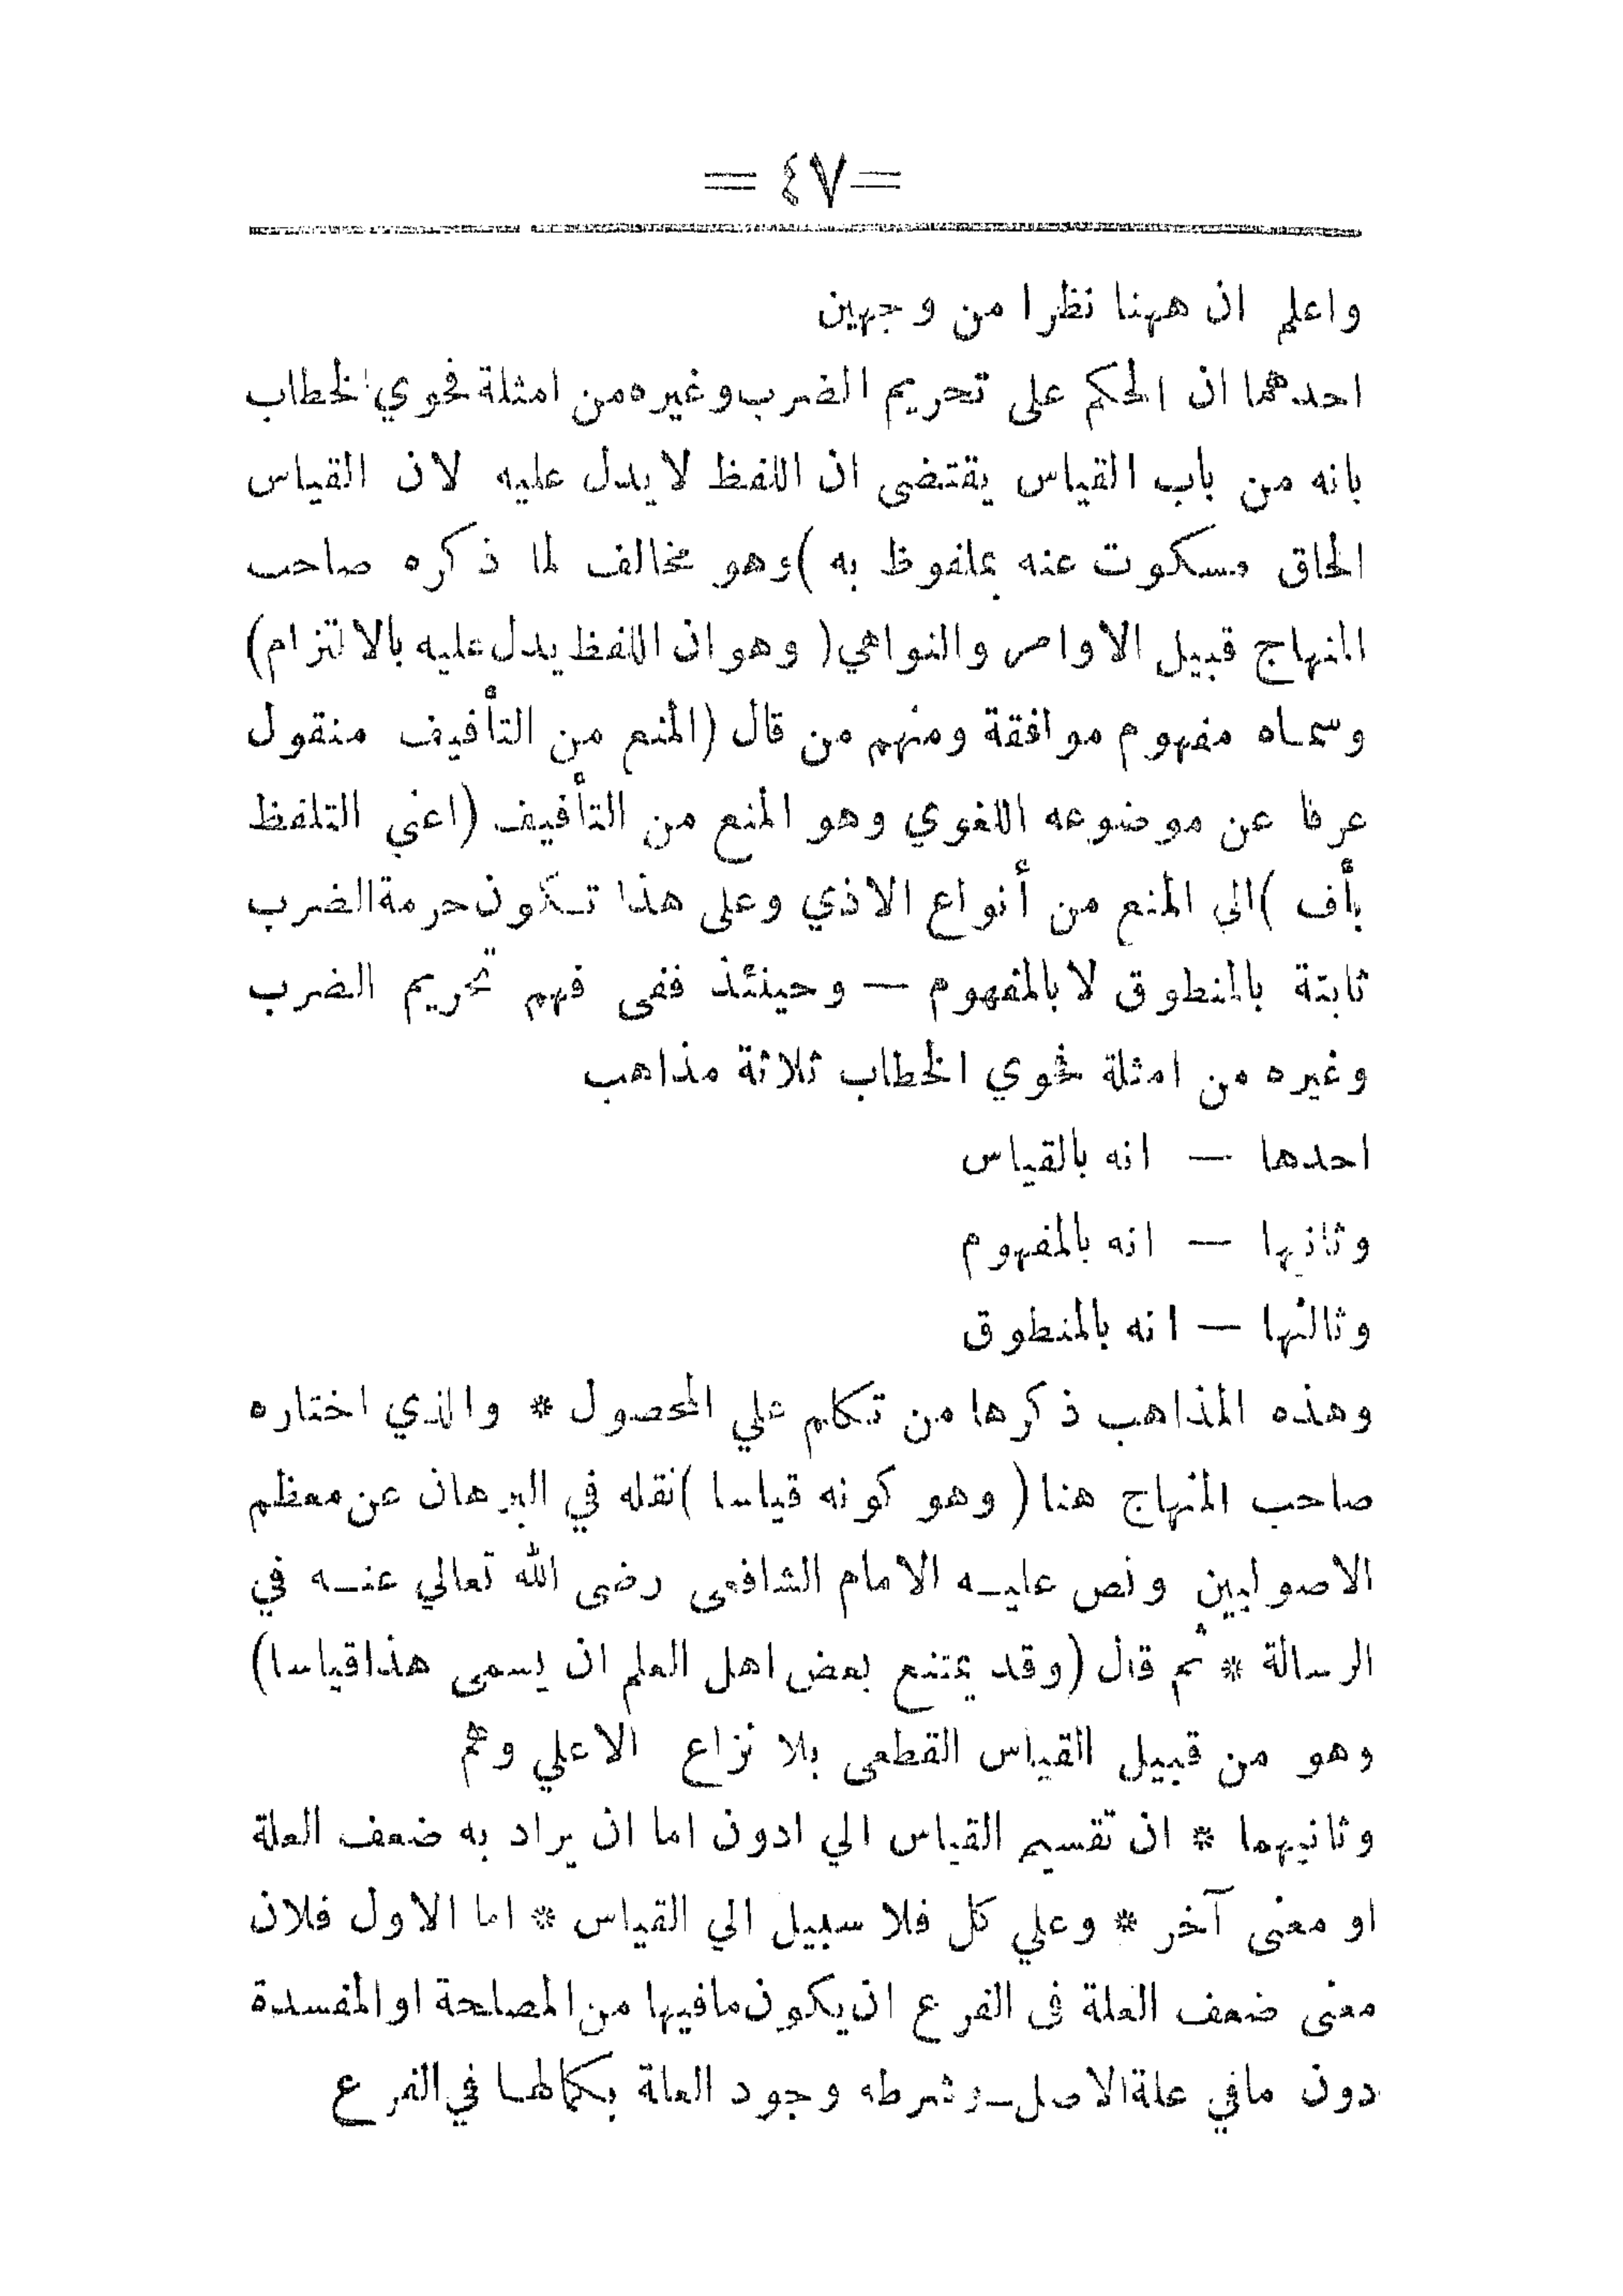 = ٤٧ =
واعلم ان ههنا نظرا من وجهين
احدهما ان الحكم على تحريم الضرب وغيره من امثلة فحوي الخطاب
بانه من باب القياس يقتضى ان اللفظ لا يدل عليه لان القياس
الحاق مسكوت عنه بملفوظ به )وهو مخالف لما ذكره صاحب
المنهاج قبيل الاوامر والنواهي( وهو ان اللفظ يدل عليه بالالتزام)
وسماه مفهوم موافقة ومنهم من قال (المنع من التأفيف منقول
عرفا عن موضوعه اللغوي وهو المنع من التأفيف (اعني التلفظ
بأف )الى المنع من أنواع الاذي وعلى هذا تكون حرمة الضرب
ثابتة بالمنطوق لا بالمفهوم — وحينئذ ففى فهم تحريم الضرب
وغيره من امثلة فحوي الخطاب ثلاثة مذاهب
احدها — انه بالقياس
وثانيها — انه بالمفهوم
وثالثها — انه بالمنطوق
وهذه المذاهب ذكرها من تكلم علي المحصول * والذي اختاره
صاحب المنهاج هنا ( وهو كونه قياسا )نقله في البرهان عن معظم
الاصوليين ونص عليه الامام الشافعى رضى الله تعالي عنه في
الرسالة * ثم قال (وقد يمتنع بعض اهل العلم ان يسمى هذا قياسا)
وهو من قبيل القياس القطعى بلا نزاع الا علي وهم
وثانيهما * ان تقسيم القياس الي ادون اما ان يراد به ضعف العلة
او معنى آخر * وعلي كل فلا سبيل الي القياس * اما الاول فلان
معنى ضعف العلة فى الفرع ان يكون مافيها من المصلحة او المفسدة
دون مافي علة الاصل — وشرطه وجود العلة بكمالها في الفرع